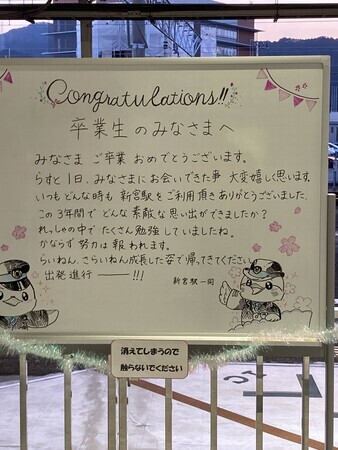 Congratulations!!
卒業生のみなさまへ
みなさま ご卒業 おめでとうございます。
らすと1日、みなさまにお会いできた事 大変嬉しく思います。
いつもどんな時も 新宮駅をご利用頂きありがとうございました。
この3年間で どんな素敵な思い出ができましたか？
れっしゃの中で たくさん勉強していましたね。
かならず 努力は 報われます。
らいねん、さらいねん成長した姿で帰ってきてください。
出発進行 ―――!!!
新宮駅一同
消えてしまうので
触らないでください